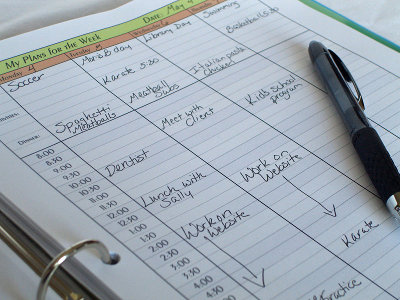 My Plans for the Week
Date: May 4
Monday 4
Tuesday 5
Wednesday 6
Soccer
Mom's B day
Library Day
Swimming
Karate 5:30
Basketball 5:30
Dinner:
Spaghetti
Meatballs
Meatball
Subs
Italian pasta
Chicken
8:00
8:30
9:00
9:30
10:00
10:30
11:00
11:30
12:00
12:30
1:00
1:30
2:00
2:30
3:00
3:30
4:00
4:30
Meet with
Client
Kids school
program
Dentist
Lunch with
Sally
Work on
Website
Work on
Website
Karate
Practice